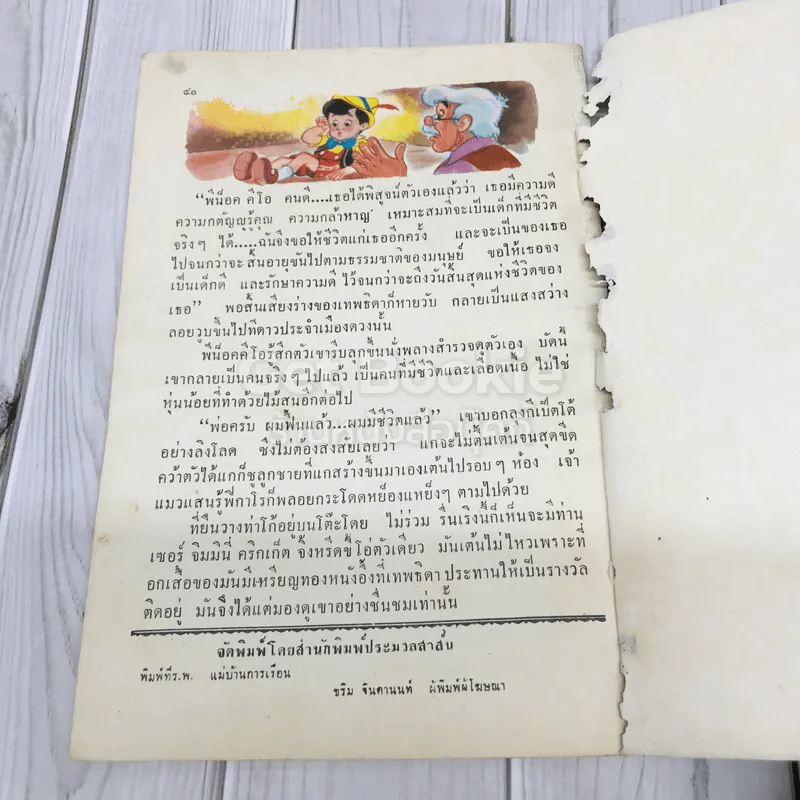 ๔๐
“พีน็อค คีโอ คนดี....เธอได้พิสูจน์ตัวเองแล้วว่า เธอมีความดี
ความกตัญญูรู้คุณ ความกล้าหาญ เหมาะสมที่จะเป็นเด็กที่มีชีวิต
จริงๆ ได้.....ฉันจึงขอให้ชีวิตแก่เธออีกครั้ง และจะเป็นของเธอ
ไปจนกว่าจะ สิ้นอายุขันไปตามธรรมชาติของมนุษย์ ขอให้เธอจง
เป็นเด็กดี และรักษาความดี ไว้จนกว่าจะถึงวันสิ้นสุดแห่งชีวิตของ
เธอ” พอสิ้นเสียงร่างของเทพธิดาก็หายวับ กลายเป็นแสงสว่าง
ลอยวูบขึ้นไปที่ดาวประจำเมืองดวงนั้น
พีน็อคคีโอรู้สึกตัวเขารีบลุกขึ้นนั่งพลางสำรวจดูตัวเอง บัดนี้
เขากลายเป็นคนจริงๆ ไปแล้ว เป็นคนที่มีชีวิตและเลือดเนื้อ ไม่ใช่
หุ่นน้อยที่ทำด้วยไม้สนอีกต่อไป
“พ่อครับ ผมฟื้นแล้ว...ผมมีชีวิตแล้ว” เขาบอกลุงกีเป็ตโต้
อย่างลิงโลด ซึ่งไม่ต้องสงสัยเลยว่า แกจะไม่ตื่นเต้นจนสุดขีด
คว้าตัวได้แกก็ชูลูกชายที่แกสร้างขึ้นมาเองเต้นไปรอบๆ ห้อง เจ้า
แมวแสนรู้ฟิกาโรก็พลอยกระโดดหย็องแหย็งๆ ตามไปด้วย
ที่ยืนวางท่าโก้อยู่บนโต๊ะโดย ไม่ร่วม รื่นเริงนี้ก็เห็นจะมีท่าน
เซอร์ จิมมินี่ คริกเก็ต จิ้งหรีดขี้โอ่ตัวเดียว มันเต้นไม่ไหวเพราะที่
อกเสื้อของมันมีเหรียญทองหนังอึ้งที่เทพธิดา ประทานให้เป็นรางวัล
ติดอยู่ มันจึงได้แต่มองดูเขาอย่างชื่นชมเท่านั้น
จัดพิมพ์โดยสำนักพิมพ์ประมวลสาส์น
พิมพ์ที่ร.พ. แม่บ้านการเรือน
ชริม จินดานนท์ ผู้พิมพ์ผู้โฆษณา